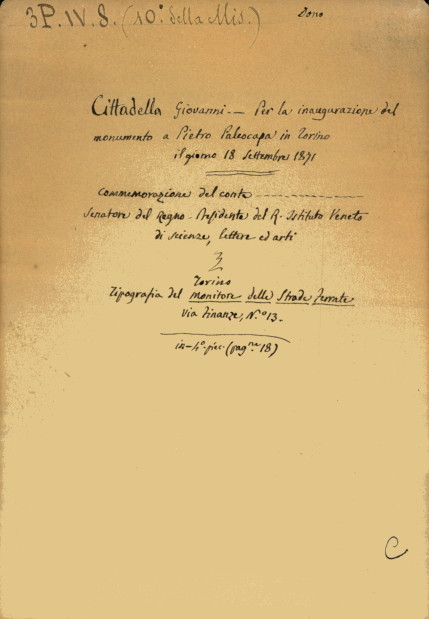 3P.IV.8. (10° della Mis.) Dono
Cittadella Giovanni - Per la inaugurazione del
monumento a Pietro Paleocapa in Torino
il giorno 18 Settembre 1871
Commemorazione del conte
Senatore del Regno - Presidente del R. Istituto Veneto
di scienze, lettere ed arti
Torino
Tipografia del monitore delle Strade Ferrate
Via Finanze, N.° 13.
in-4° picc. (pagne 18)
C